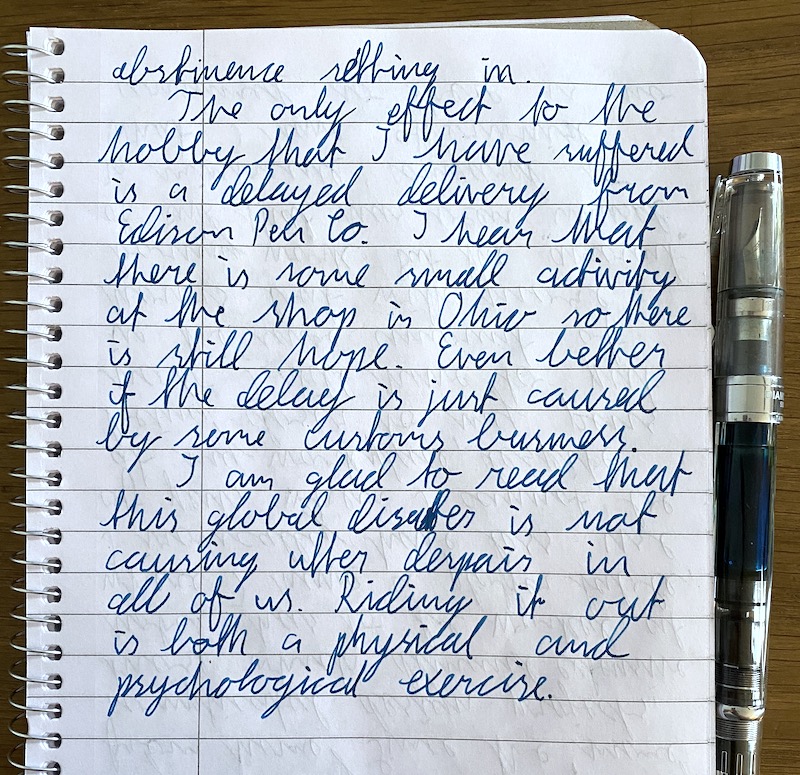 abstinence setting in.
The only effect to the
hobby that I have suffered
is a delayed delivery from
Edison Pen Co. I hear that
there is some small activity
at the shop in Ohio so there
is still hope. Even better
if the delay is just caused
by some customs business.
I am glad to read that
this global disaster is not
causing utter despair in
all of us. Riding it out
is both a physical and
psychological exercise.